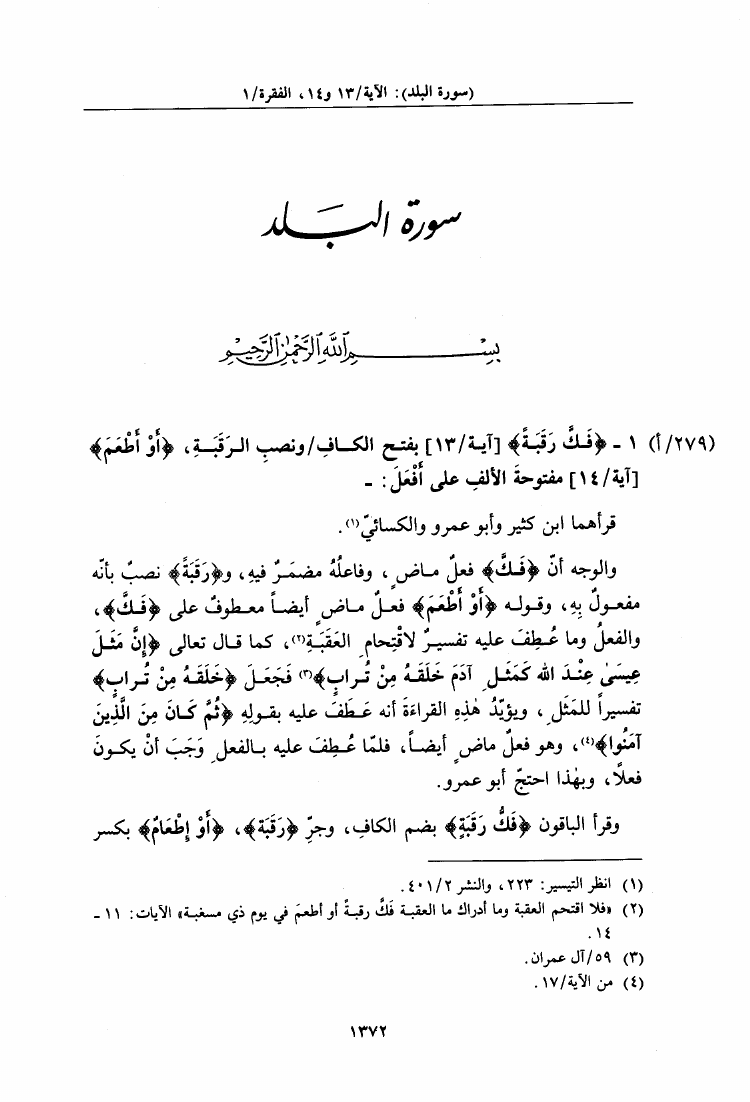 (سورة البلد): الآية/١٣ و١٤، الفقرة/١
سورة البَلد
بِسْمِ اللَّهِ الرَّحْمٰنِ الرَّحِيمِ
(٢٧٩/أ) ١ - ﴿فَكَّ رَقَبَةً﴾ [آية/١٣] بفتح الكاف/ونصبِ الرَقَبَةِ، ﴿أَوْ أَطْعَمَ﴾
[آية/١٤] مفتوحةَ الألفِ على أَفْعَلَ: -
قرأهما ابن كثير وأبو عمرو والكسائيّ(١).
والوجه أنّ ﴿فَكَّ﴾ فعلٌ ماضٍ، وفاعلُهُ مضمَرٌ فيهِ، و﴿رَقَبَةً﴾ نصبٌ بأنه
مفعولٌ بِهِ، وقوله ﴿أَوْ أَطْعَمَ﴾ فعلٌ ماضٍ أيضاً معطوفٌ على ﴿فَكَّ﴾،
والفعلُ وما عُطِفَ عليه تفسيرٌ لاقْتِحامِ العَقَبَةِ(٢)، كما قال تعالى ﴿إِنَّ مَثَلَ
عِيسَىٰ عِنْدَ الله كَمَثَلِ آدَمَ خَلَقَهُ مِنْ تُرابٍ﴾(٣) فَجَعَلَ ﴿خَلَقَهُ مِنْ تُرابٍ﴾
تفسيراً للمَثَلِ، ويؤيّدُ هٰذِهِ القراءَةَ أنه عَطَفَ عليه بقولِهِ ﴿ثُمَّ كَانَ مِنَ الَّذِينَ
آمَنُوا﴾(٤)، وهو فعلٌ ماضٍ أيضاً، فلمّا عُطِفَ عليه بالفعلِ وَجَبَ أنْ يكونَ
فعلًا، وبهٰذا احتجّ أبو عمرو.
وقرأ الباقون ﴿فَكُّ رَقَبَةٍ﴾ بضم الكاف، وجرِّ ﴿رَقَبَة﴾، ﴿أَوْ إِطْعَامٌ﴾ بكسر
(١) انظر التيسير: ٢٢٣، والنشر ٤٠١/٢.
(٢) «فلا اقتحم العقبة وما أدراك ما العقبة فكَّ رقبةً أو أطعمَ في يوم ذي مسغبة» الآيات: ١١ -
١٤.
(٣) ٥٩/آل عمران.
(٤) من الآية/١٧.
١٣٧٢